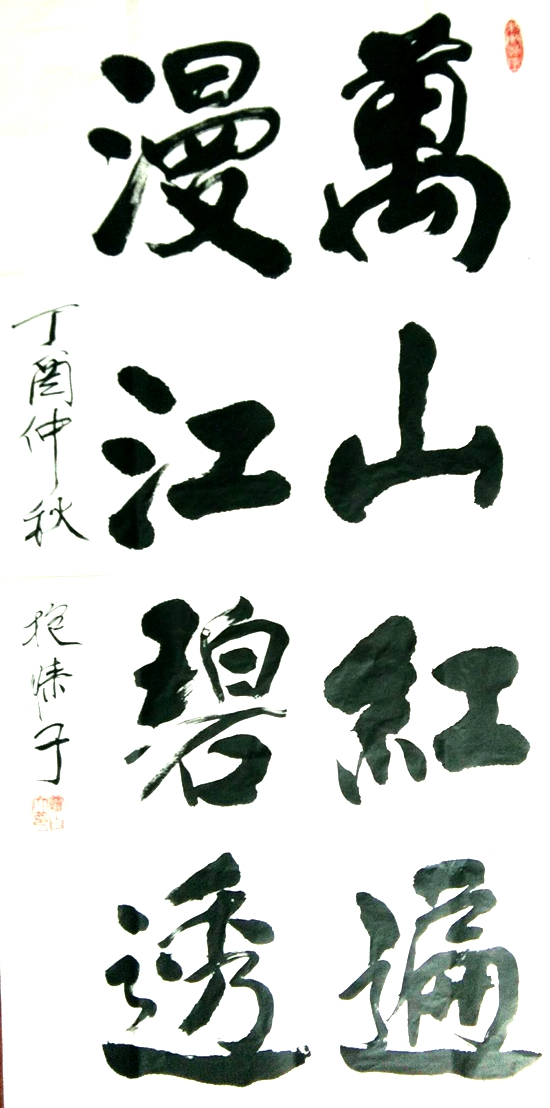 萬山紅遍
漫江碧透
丁酉仲秋
子